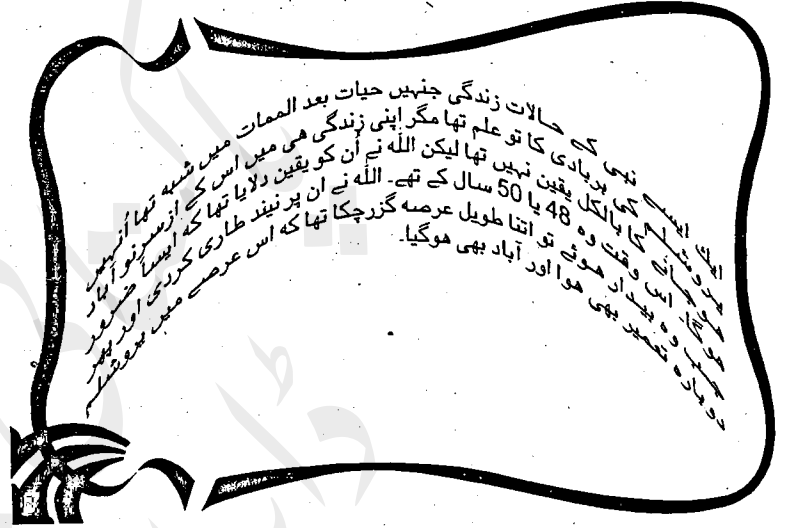 ایک ایسے نبی کے حالات زندگی جنہیں حیات بعد الممات میں شبہ تھا اُنہیں
یروشلم کی بربادی کا تو علم تھا مگر اپنی زندگی ھی میں اس کے ازسرنو آباد
ھوجانے کا بالکل یقین نہیں تھا لیکن اللّٰہ نے اُن کو یقین دلایا تھا کہ ایسا ضرور
ھوگا۔ اس وقت وہ 48 یا 50 سال کے تھے۔ اللّٰہ نے ان پر نیند طاری کردی اور پھر
جب وہ بیدار ھوئے تو اتنا طویل عرصہ گزرچکا تھا کہ اس عرصے میں یروشلم
دوبارہ تعمیر بھی ھوا اور آباد بھی ھوگیا۔